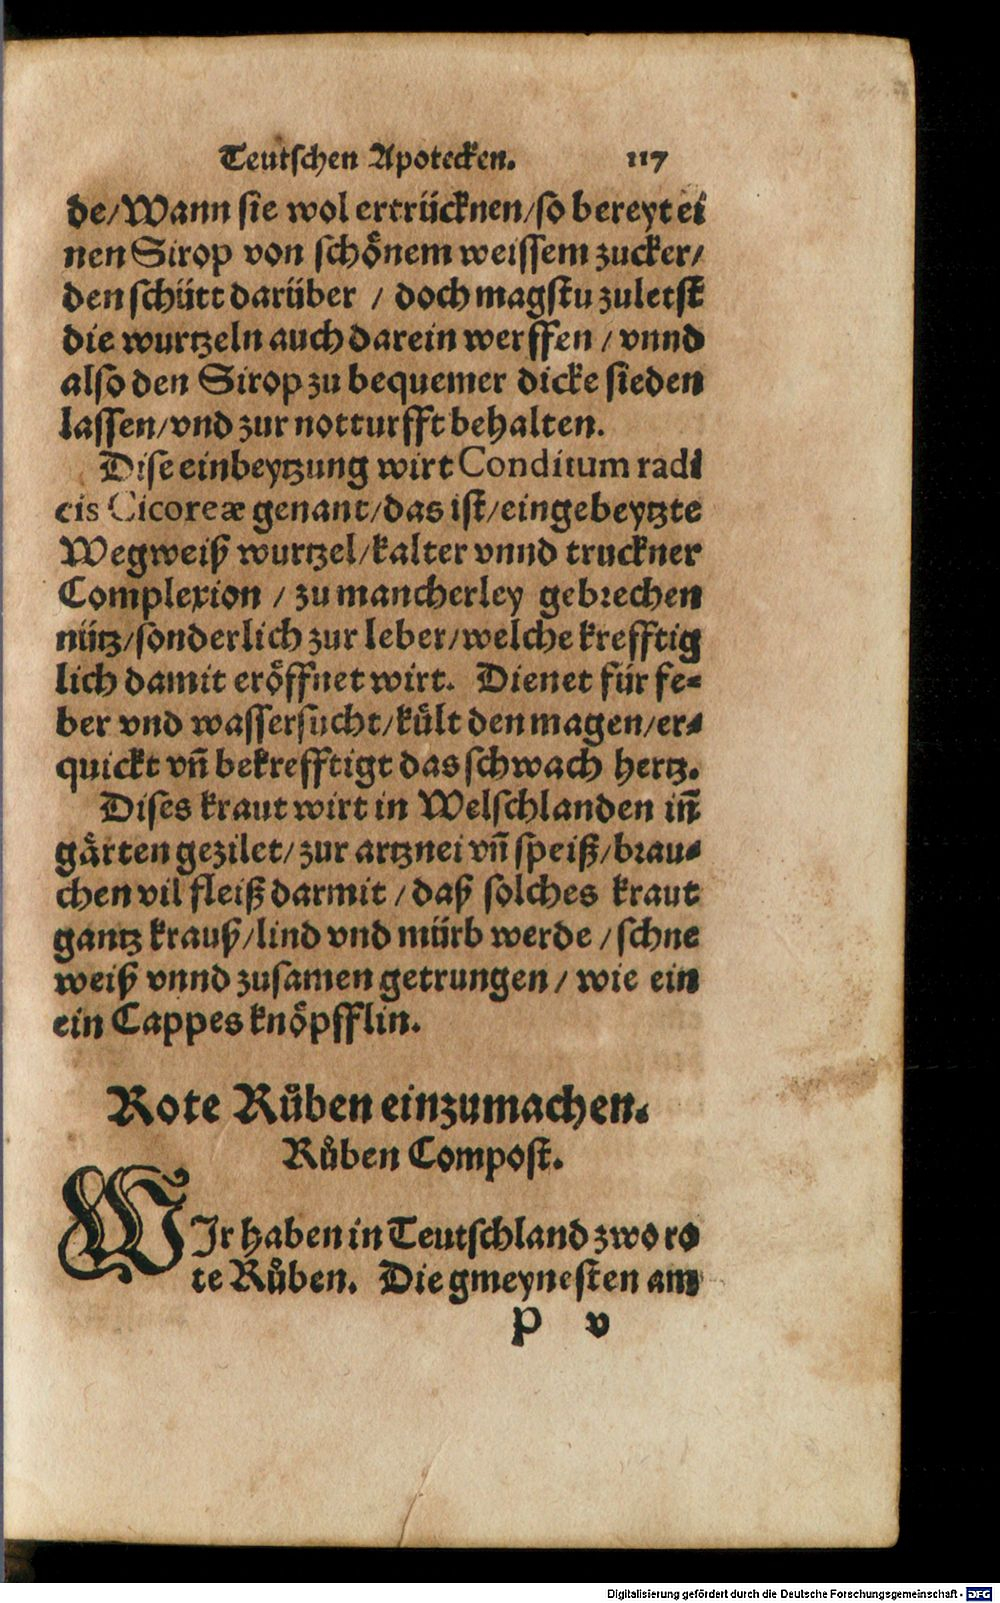 Teutschen Apotecken. 117
de/Wann sie wol ertrücknen/so bereyt ei
nen Sirop von schönem weissem zucker/
den schütt darüber / doch magstu zuletst
die wurtzeln auch darein werffen / vnnd
also den Sirop zu bequemer dicke sieden
lassen/vnd zur notturfft behalten.
Dise einbeytzung wirt Conditum radi
cis Cicoreæ genant/das ist/eingebeytzte
Wegweiß wurtzel/kalter vnnd truckner
Complexion / zu mancherley gebrechen
nütz/sonderlich zur leber/welche krefftig
lich damit eröffnet wirt. Dienet für fe-
ber vnd wassersucht/kült den magen/er-
quickt vñ bekrefftigt das schwach hertz.
Dises kraut wirt in Welschlanden iñ
gärten gezilet/zur artznei vñ speiß/brau-
chen vil fleiß darmit / daß solches kraut
gantz krauß/lind vnd mürb werde / schne
weiß vnnd zusamen getrungen / wie ein
ein Cappes knöpfflin.
Rote Růben einzumachen.
Růben Compost.
WIr haben in Teutschland zwo ro
te Růben. Die gmeynesten am
P v
Digitalisierung gefördert durch die Deutsche Forschungsgemeinschaft - DFG